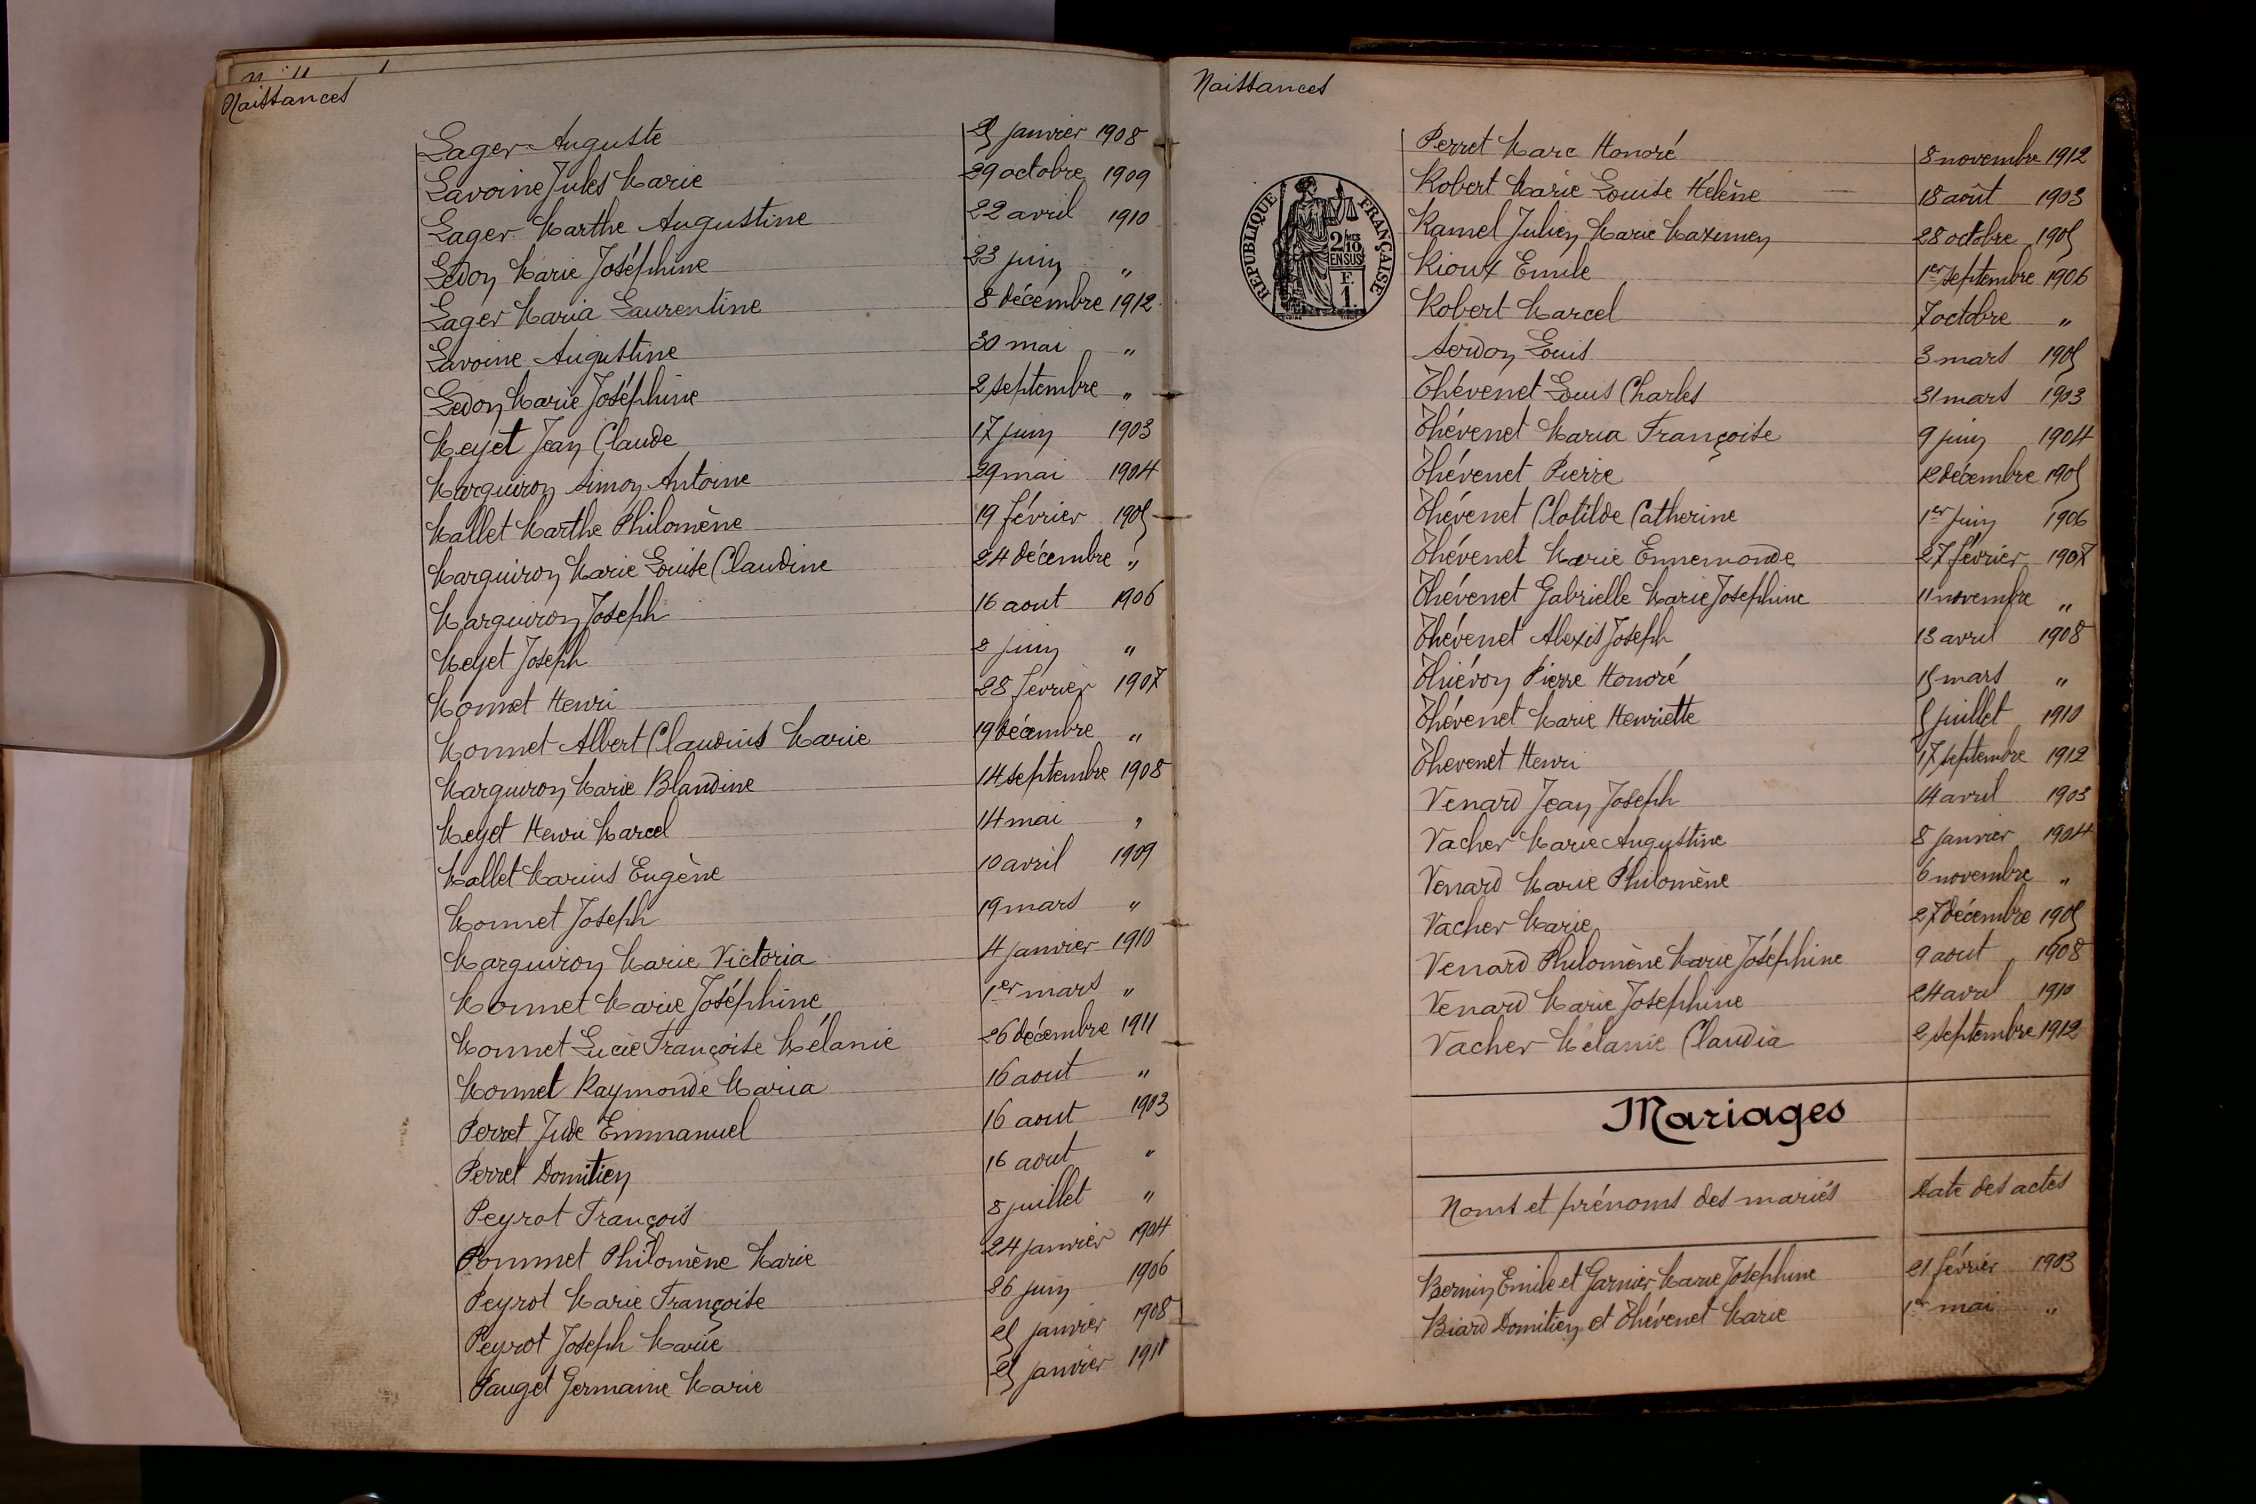 Naissances
Lager Auguste 25 janvier 1908
Lavoine Jules Marie 29 octobre 1909
Lager Marthe Augustine 22 avril 1910
Ledon Marie Joséphine 23 juin "
Lager Maria Laurentine 8 décembre 1912
Lavoine Augustine 30 mai "
Ledon Marie Joséphine 2 septembre "
Meyet Jean Claude 17 juin 1903
Marguiron Simon Antoine 29 mai 1904
Mallet Marthe Philomène 19 février 1905
Marguiron Marie Louise Claudine 24 décembre "
Marguiron Joseph 16 aout 1906
Meyet Joseph 2 juin "
Monnet Henri 28 février 1907
Monnet Albert Claudius Marie 19 décembre "
Marguiron Marie Blandine 14 septembre 1908
Meyet Henri Marcel 14 mai "
Mallet Marius Eugène 10 avril 1909
Monnet Joseph 19 mars "
Marguiron Marie Victoria 4 janvier 1910
Monnet Marie Joséphine 1er mars "
Monnet Lucie Françoise Mélanie 26 décembre 1911
Monnet Raymonde Maria 16 aout "
Perret Jude Emmanuel 16 aout 1903
Perret Domitien 16 aout "
Peyrot François 8 juillet "
Pommet Philomène Marie 24 janvier 1904
Peyrot Marie Françoise 26 juin 1906
Peyrot Joseph Marie 25 janvier 1908
Pauget Germaine Marie 25 janvier 1911
Naissances
RÉPUBLIQUE FRANÇAISE
2/10
EN SUS
F.
1.
Perret Marc Honoré 8 novembre 1912
Robert Marie Louise Hélène 18 août 1903
Ramel Julien Marie Maximen 28 octobre 1905
Rioux Emile 1er septembre 1906
Robert Marcel 7 octobre "
Serdon Louis 3 mars 1905
Thévenet Louis Charles 31 mars 1903
Thévenet Maria Françoise 9 juin 1904
Thévenet Pierre 12 décembre 1905
Thévenet Clotilde Catherine 1er juin 1906
Thévenet Marie Ennemonde 27 février 1907
Thévenet Gabrielle Marie Josephine 11 novembre "
Thévenet Alexis Joseph 13 avril 1908
Thiévon Pierre Honoré 15 mars "
Thévenet Marie Henriette 5 juillet 1910
Thevenet Henri 17 septembre 1912
Venard Jean Joseph 14 avril 1903
Vacher Marie Augustine 8 janvier 1904
Venard Marie Philomène 6 novembre "
Vacher Marie 27 décembre 1905
Venard Philomène Marie Joséphine 9 aout 1908
Venard Marie Josephine 24 avril 1910
Vacher Mélanie Claudia 2 septembre 1912
Mariages
Noms et prénoms des mariés Date des actes
Bernin Emile et Garnier Marie Josephine 21 février 1903
Biard Domitien et Thévenet Marie 1er mai "